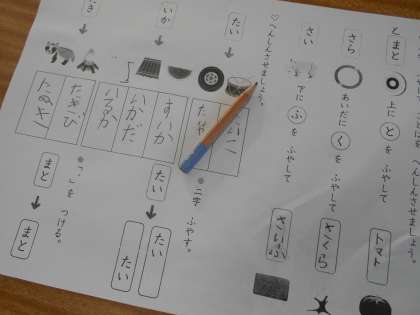 へんしんさせましょう。
まと
上に と を ふやして
トマト
さら
あいだに く を ふやして
さくら
さい
下に ふ を ふやして
さいふ
♡へんしんさせましょう。
たい
たいこ
たいや
いか
すいか
いかだ
いるか
たきび
たぬき
※二字 ふやす。
たい
たい
たい
※「゛」を つける。
まと
まど